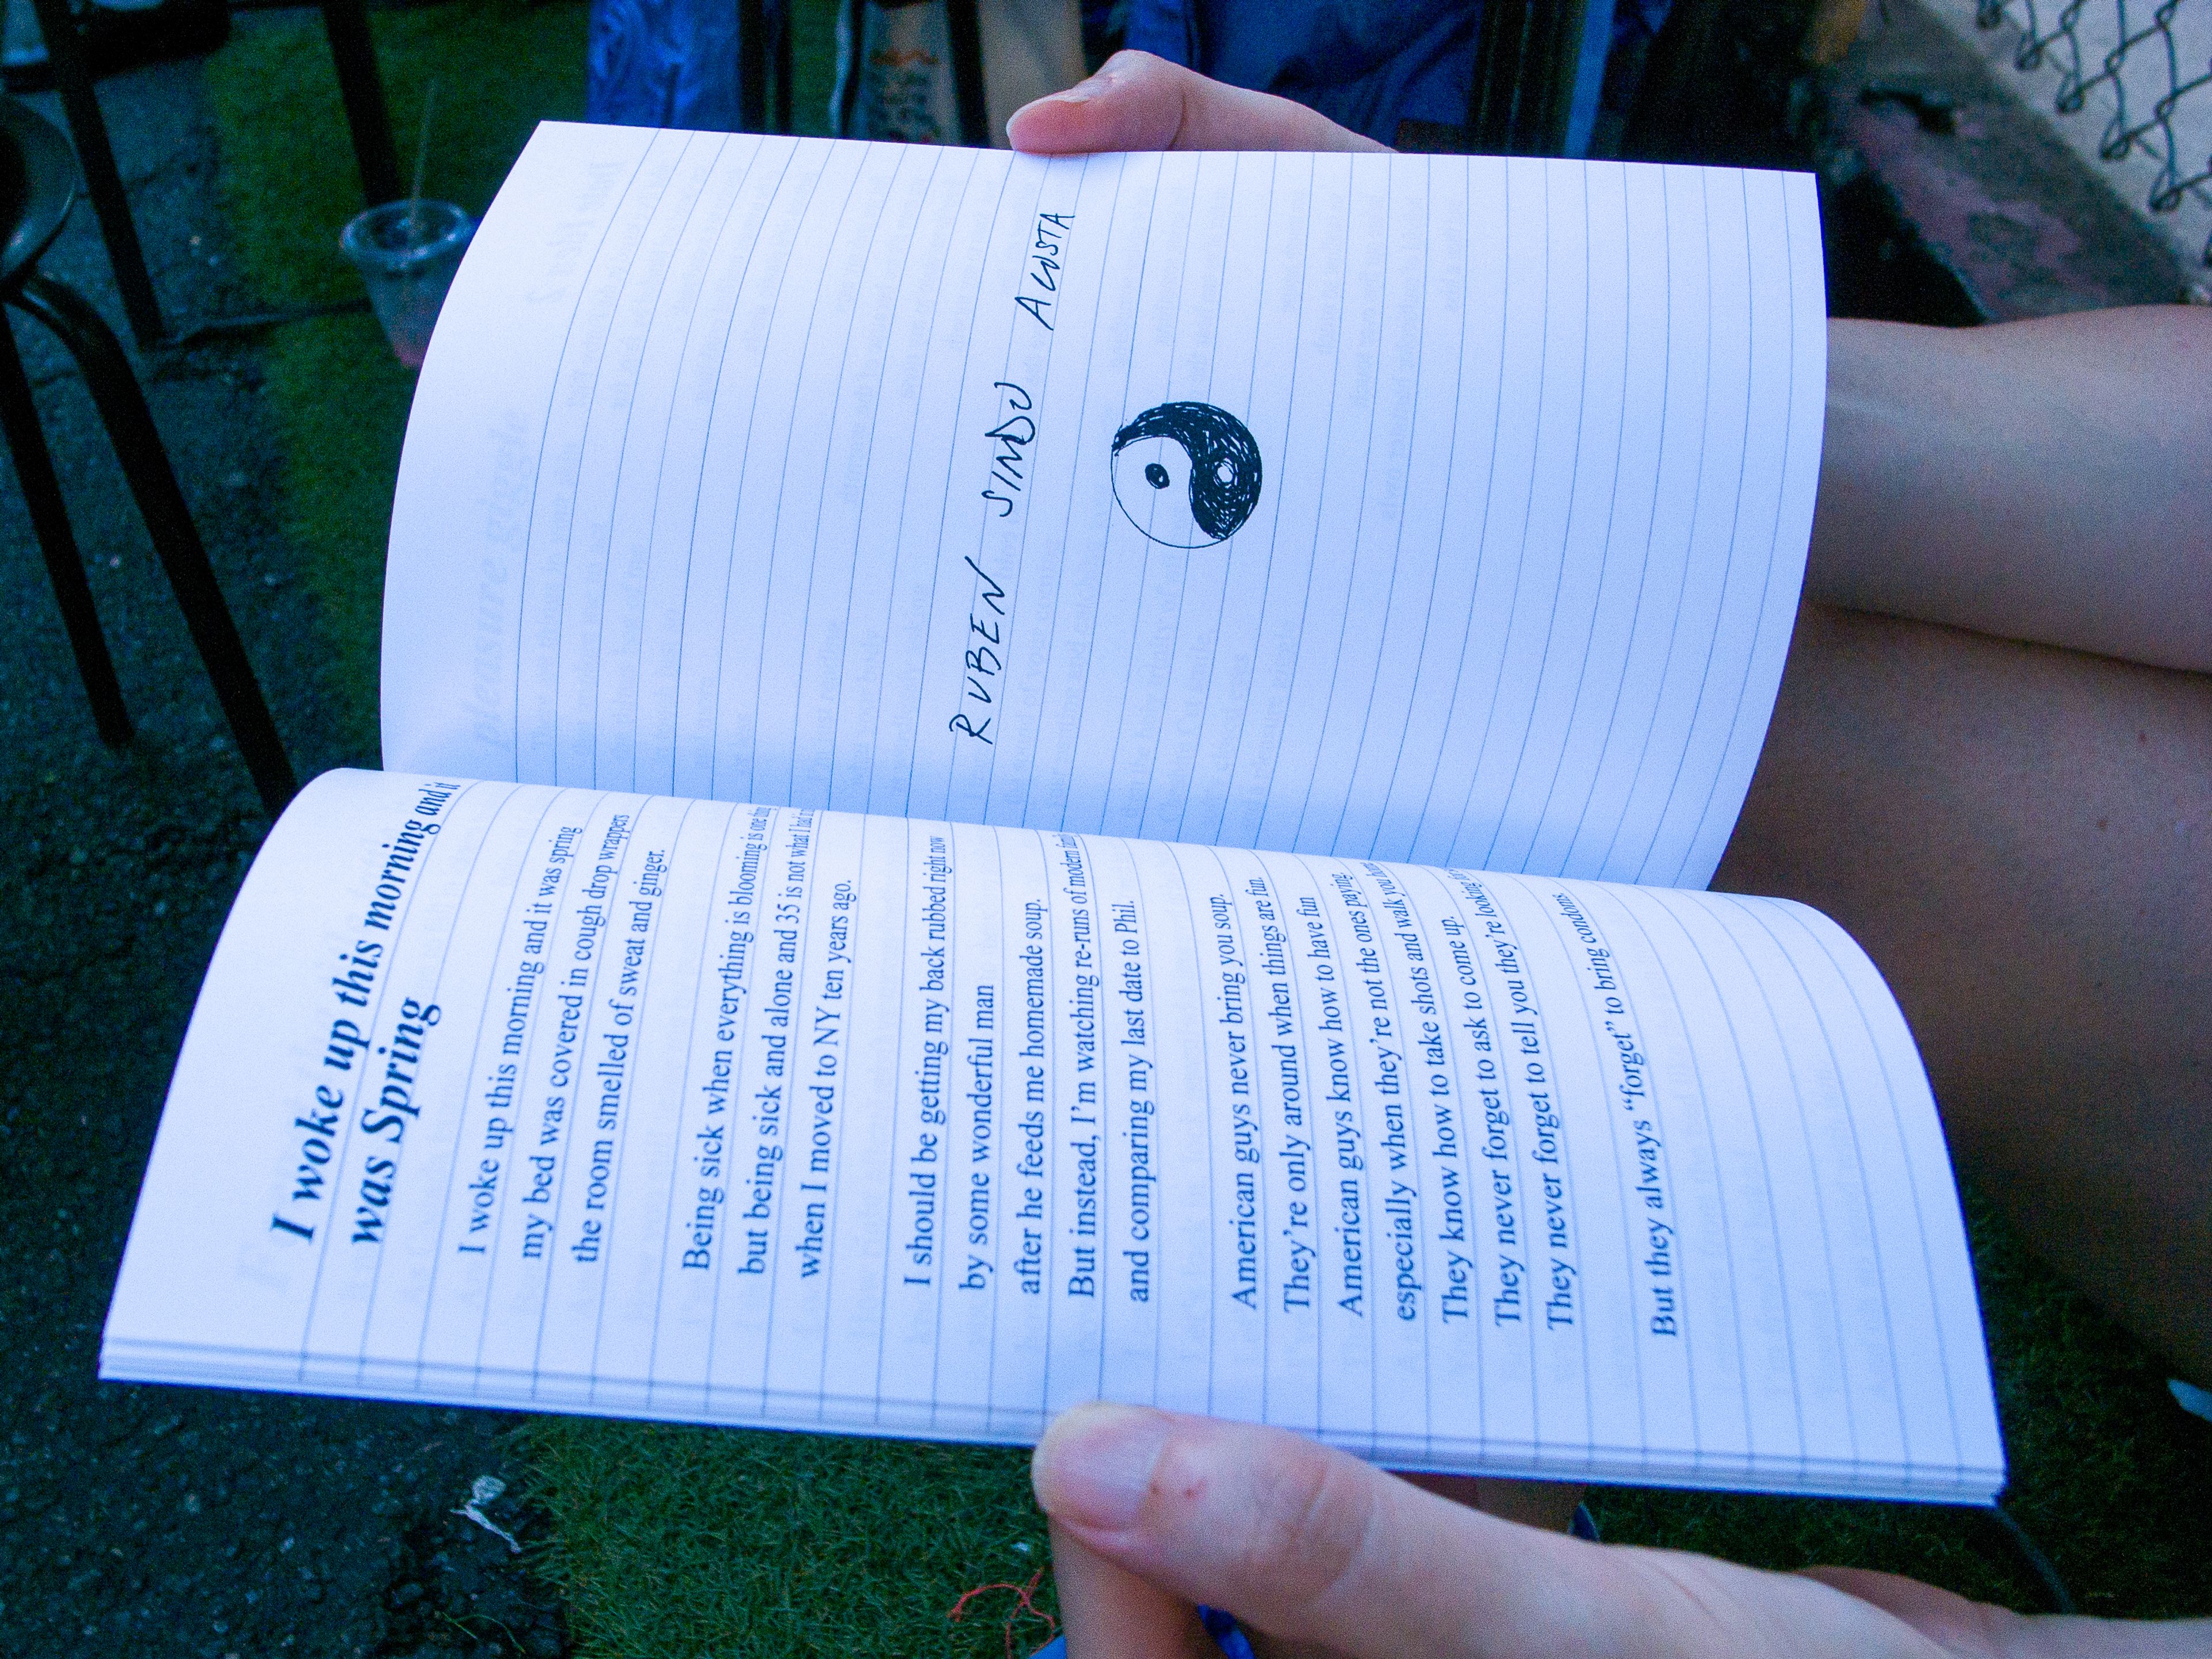 I woke up this morning and it
was Spring
I woke up this morning and it was spring
my bed was covered in cough drop wrappers
the room smelled of sweat and ginger.
Being sick when everything is blooming is one thing
but being sick and alone and 35 is not what I had in
when I moved to NY ten years ago.
I should be getting my back rubbed right now
by some wonderful man
after he feeds me homemade soup.
But instead, I'm watching re-runs of modern family
and comparing my last date to Phil.
American guys never bring you soup.
They're only around when things are fun.
American guys know how to have fun
especially when they're not the ones paying.
They know how to take shots and walk you home
They never forget to ask to come up.
They never forget to tell you they're looking for
But they always “forget” to bring condoms.
RUBEN SINDU ACOSTA